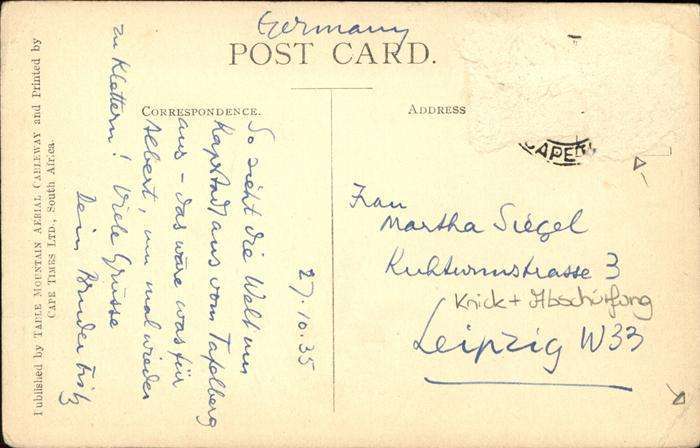 Germany
POST CARD.
CORRESPONDENCE.
ADDRESS
CAPE
27.10.35
So sieht die Welt um
Kapstadt aus vom Tafelberg
aus – das wäre was für
Albert, um mal wieder
zu Klettern! Viele Grüsse
Dein Bruder Fritz
Frau
Martha Siegel
3
Knick + Abschürfung
Leipzig W33
Published by TABLE MOUNTAIN AERIAL CABLEWAY and Printed by
CAPE TIMES LTD., South Africa.